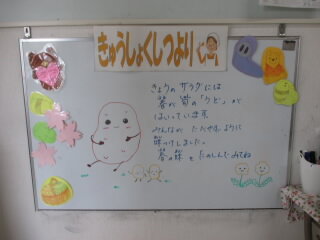 きゅうしょくしつより
きょうの サラダには
春が旬の「うど」が
はいっています
みんなが たべやすいように
味つけしました。
春の味を たのしんでみてね